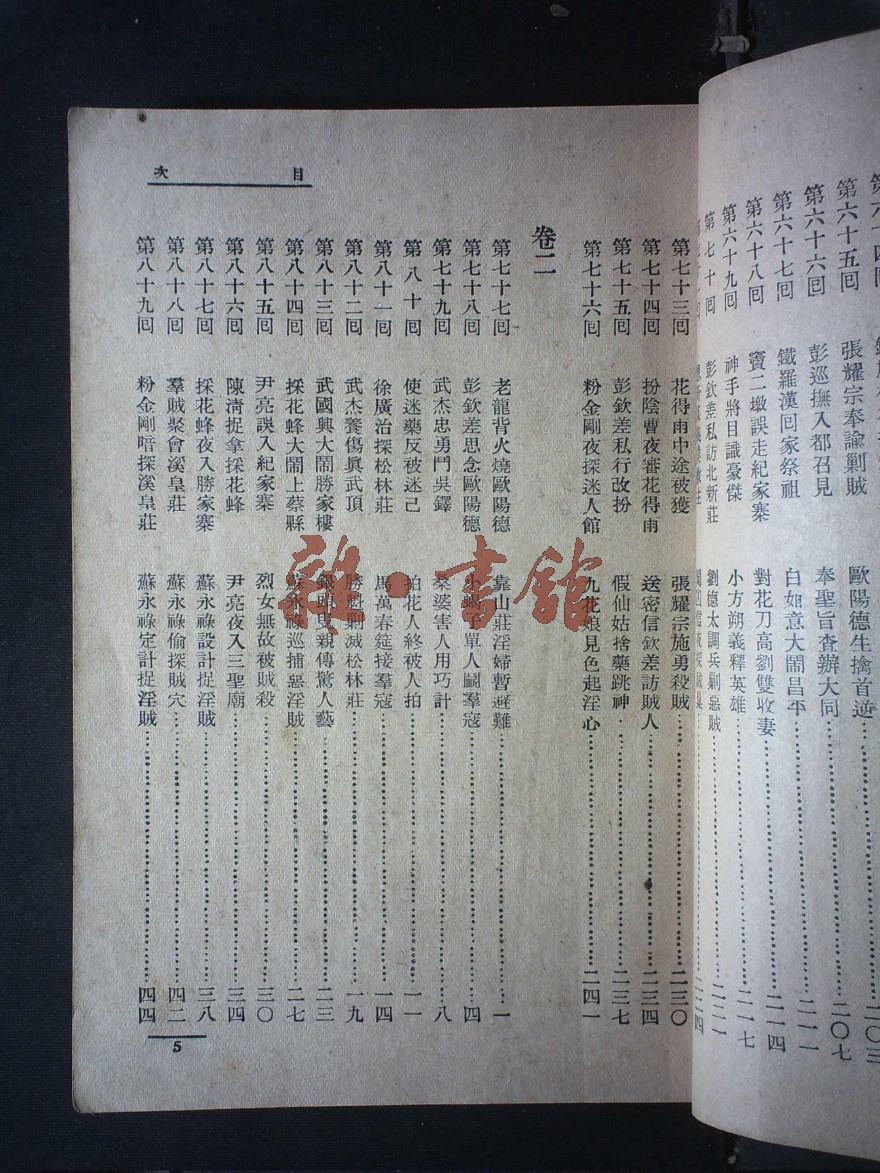 第六十五回 張耀宗奉諭剿賊 歐陽德生擒首逆 二〇三
第六十六回 彭巡撫入都召見 奉聖旨查辦大同 二〇七
第六十七回 鐵羅漢回家祭祖 白如意大鬧昌平 二一一
第六十八回 竇二墩誤走紀家寨 對花刀高劉雙收妻 二一四
第六十九回 神手將目識豪傑 小方朔義釋英雄 二一七
第七十回 彭欽差私訪北新莊 劉德太調兵剿惡賊
第七十三回 花得雨中途被獲 張耀宗施勇殺賊 二三〇
第七十四回 扮陰曹夜審花得雨 送密信欽差訪賊人 二三四
第七十五回 彭欽差私行改扮 假仙姑捨藥跳神 二三七
第七十六回 粉金剛夜探迷人館 九花娘見色起淫心 二四一
卷二
第七十七回 老龍背火燒歐陽德 靠山莊淫婦暫避難 一
第七十八回 彭欽差思念歐陽德 小蝎子單人鬭羣寇 四
第七十九回 武杰忠勇鬥吳鐸 桑婆害人用巧計 八
第八十回 使迷藥反被迷己 拍花人終被人拍 一一
第八十一回 徐廣治探松林莊 馬萬春筵接羣寇 一四
第八十二回 武杰養傷眞武頂 勝魁剿滅松林莊 一九
第八十三回 武國興大鬧勝家樓 銀頭叟親傳驚人藝 二三
第八十四回 採花蜂大鬧上蔡縣 蘇永祿巡捕惡淫賊 二七
第八十五回 尹亮誤入紀家寨 烈女無故被賊殺 三〇
第八十六回 陳清捉拿採花蜂 尹亮夜入三聖廟 三四
第八十七回 採花蜂夜入勝家寨 蘇永祿設計捉淫賊 三八
第八十八回 羣賊聚會溪皇莊 蘇永祿偷探賊穴 四二
第八十九回 粉金剛暗探溪皇莊 蘇永祿定計捉淫賊 四四
目次
5
雜·書館